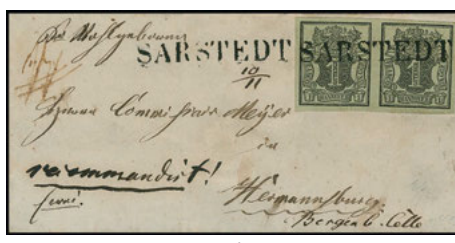 Wohlgeboren
SARSTEDT SARSTEDT
10
11
1 1
Herrn Commissair Meyer
in
recommandirt!
Hermannsburg.
Bergen b. Celle